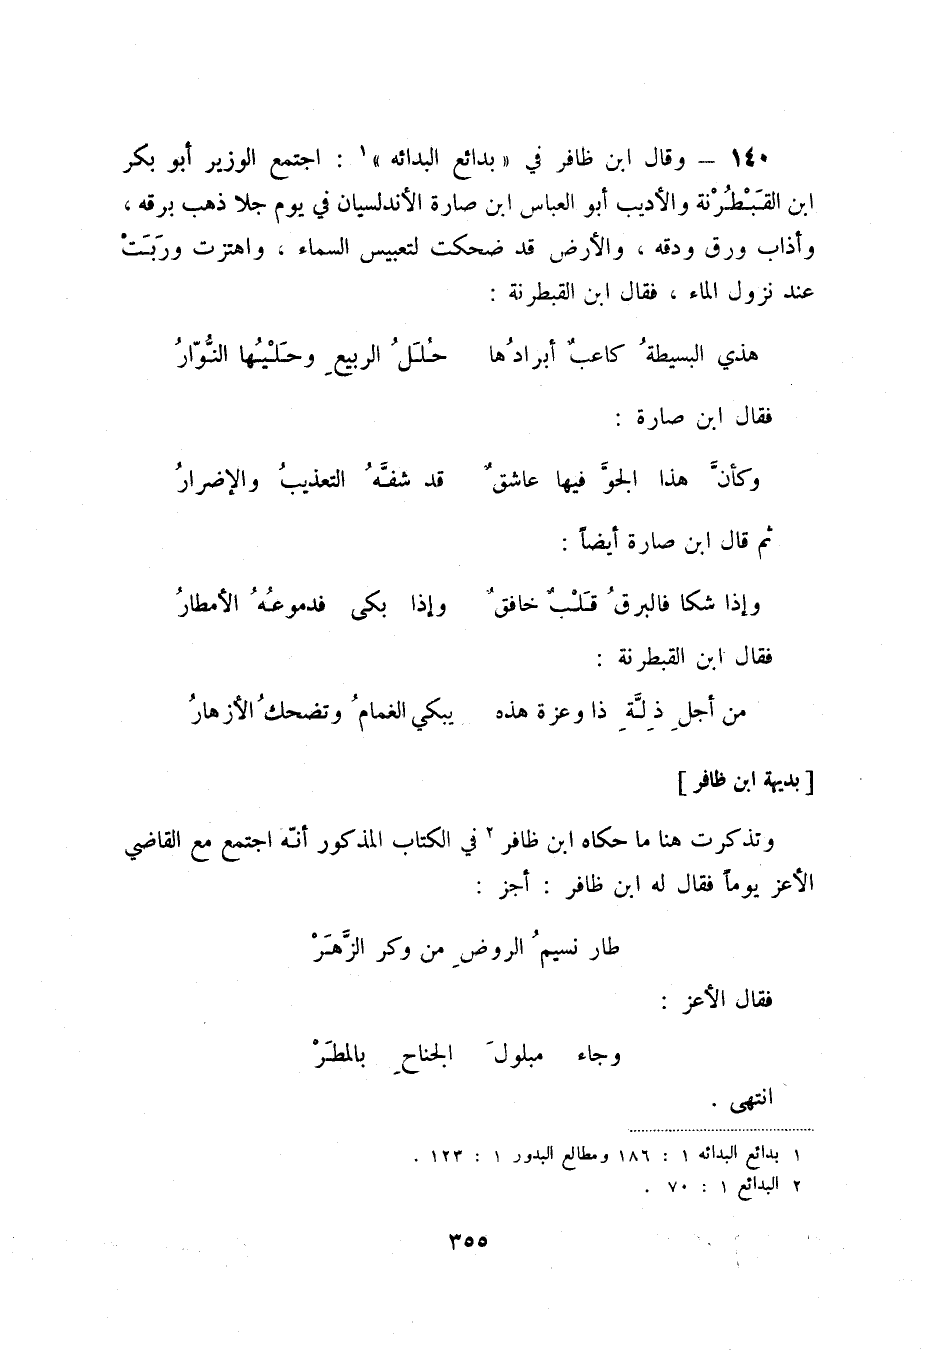 ١٤٠ – وقال ابن ظافر في « بدائع البدائه »١ : اجتمع الوزير أبو بكر
ابن القَبْطُرْنة والأديب أبو العباس ابن صارة الأندلسيان في يوم جلا ذهب برقه ،
وأذاب ورق ودقه ، والأرض قد ضحكت لتعبيس السماء ، واهتزت ورَبَتْ
عند نزول الماء ، فقال ابن القبطرنة :
هذي البسيطةُ كاعبٌ أبرادُها حُلَلُ الربيعِ وحَلْيُها النُّوّارُ
فقال ابن صارة :
وكأنَّ هذا الجوَّ فيها عاشقٌ قد شفَّهُ التعذيبُ والإضرارُ
ثم قال ابن صارة أيضاً :
وإذا شكا فالبرقُ قَلْبٌ خافقٌ وإذا بكى فدموعُهُ الأمطارُ
فقال ابن القبطرنة :
من أجلِ ذِلَّةِ ذا وعزة هذه يبكي الغمامُ وتضحكُ الأزهارُ
[ بديهة ابن ظافر ]
وتذكرت هنا ما حكاه ابن ظافر٢ في الكتاب المذكور أنّه اجتمع مع القاضي
الأعز يوماً فقال له ابن ظافر : أجز :
طار نسيمُ الروضِ من وكر الزَّهَرْ
فقال الأعز :
وجاء مبلولَ الجناحِ بالمطَرْ
انتهى .
١ بدائع البدائه ١ : ١٨٦ ومطالع البدور ١ : ١٢٣ .
٢ البدائع ١ : ٧٠ .
٣٥٥